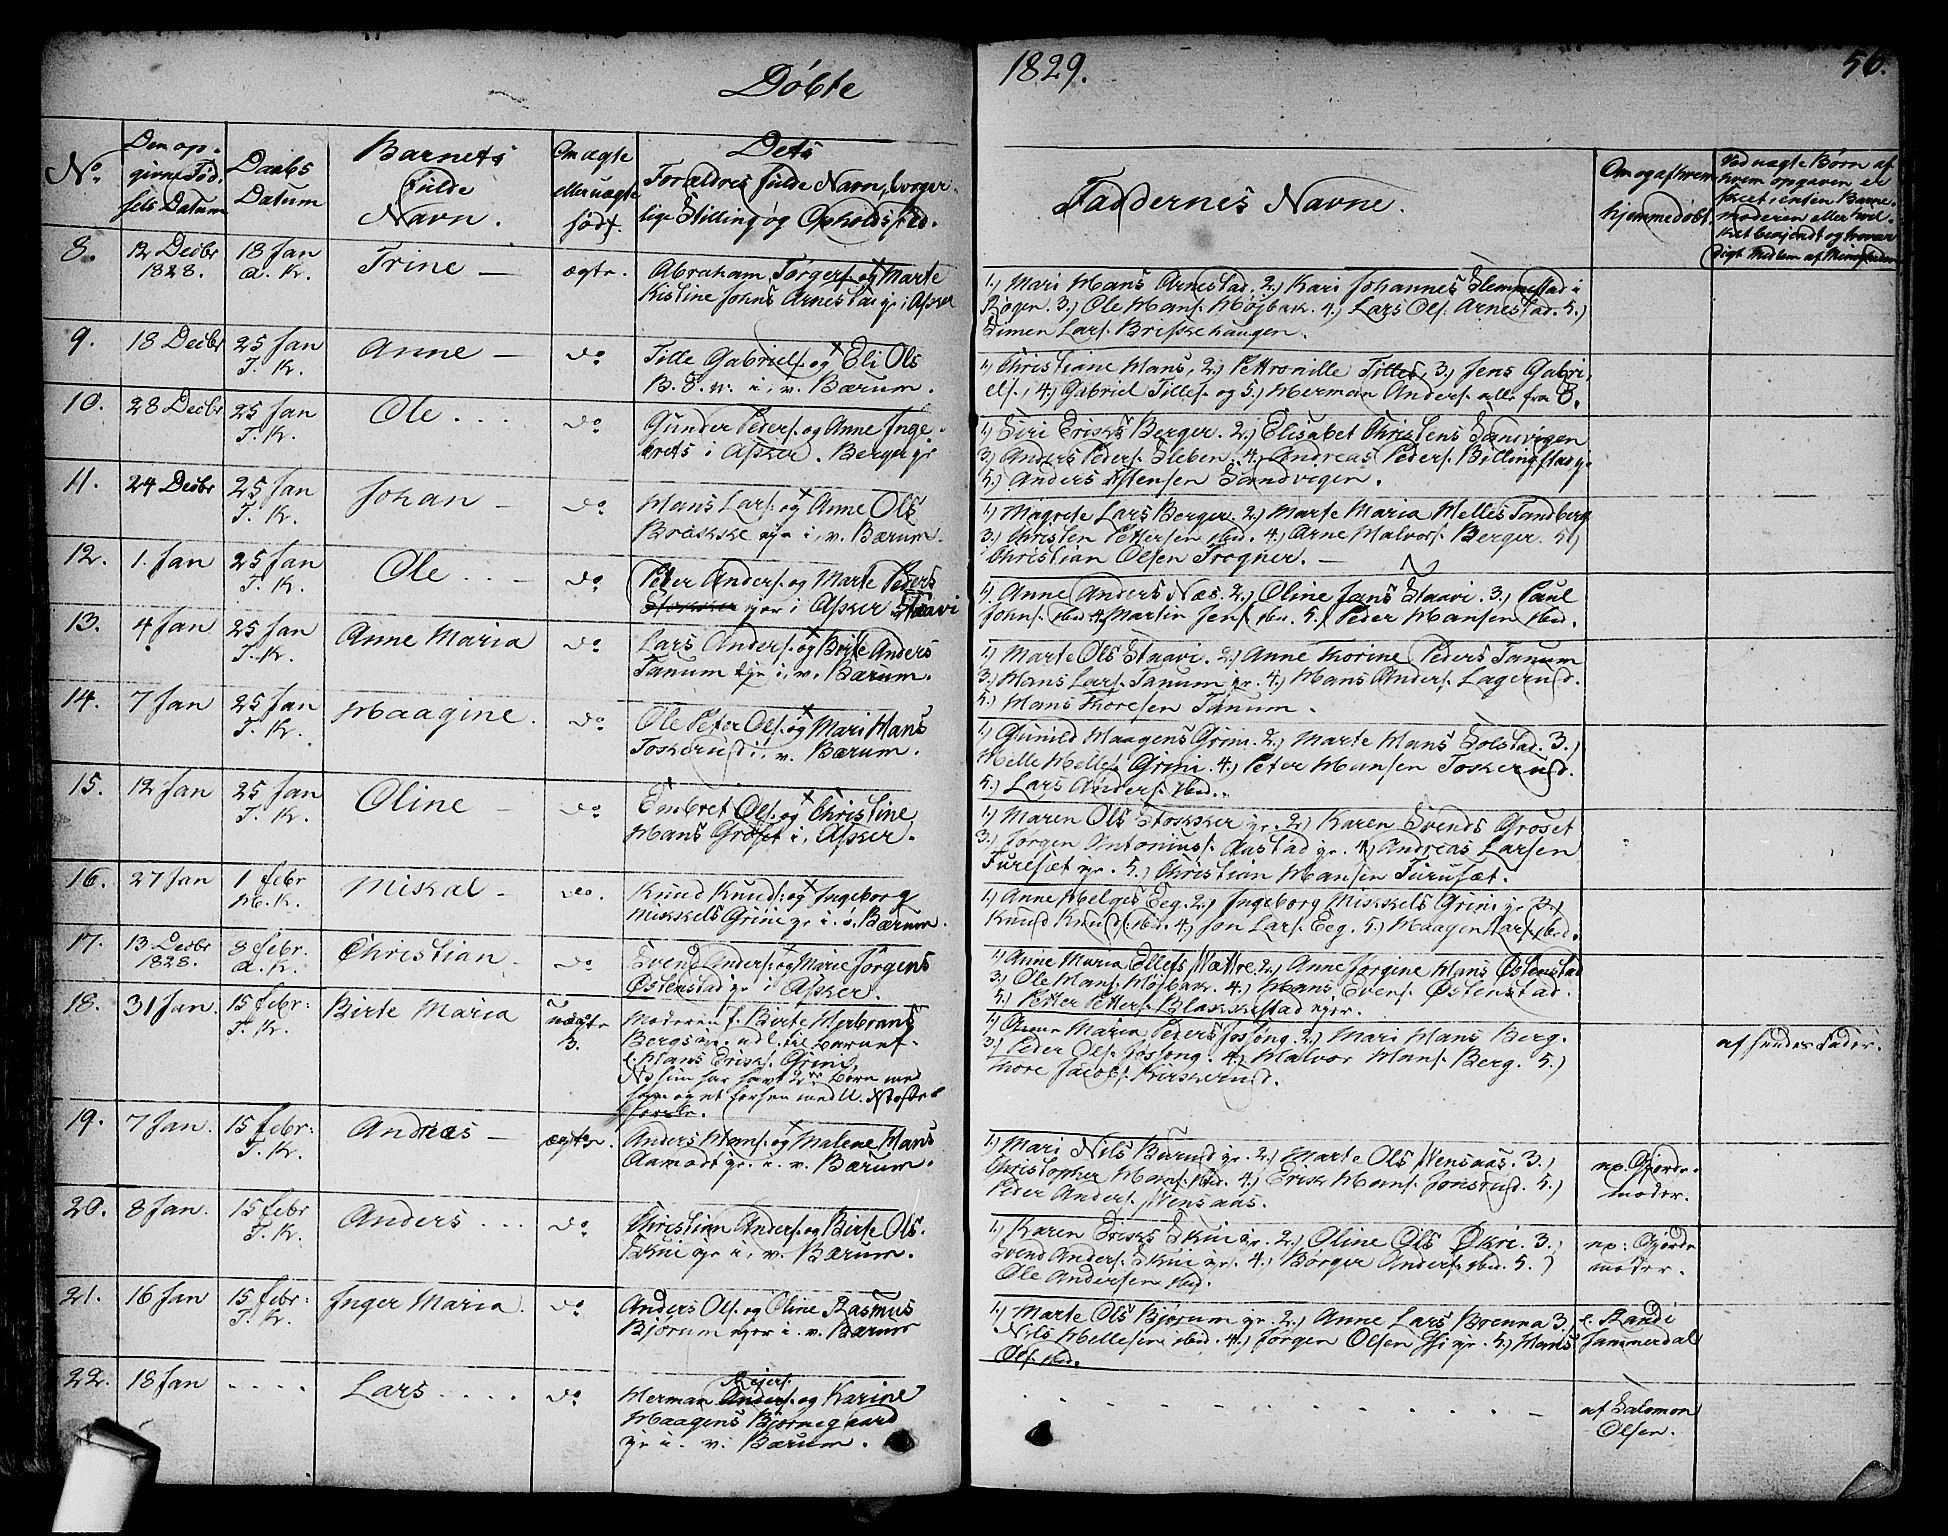 Döbte
1829.
56.
No.
Den op-
givne Fød-
sels Datum
Daabs
Datum
Barnets
fulde
Navn.
Om ægte
eller uægte
född.
Dets
Forældres fulde Navn, borger-
lige Stilling og Opholdssted.
Faddernes Navne.
Om og af hvem
hjemmedöbt
Ved uægte Börn af
hvem opgaven er
skeet, enten Barne-
moderen eller hvil-
ket bosiendt og troværdigt
Medlem af Menigheden
8.
12 Decbr
1828.
18 Jan
A. K.
Trine —
ægte.
Abraham Törgers. og Marte
Kistine Johns Arnestad gr: i Asker
1.) Mari Hans Arnestad. 2.) Kari Johannes Slemmestad i
Røgen. 3.) Ole Hans. Højbak. 4.) Lars Ols. Arnestad. 5.)
Simen Lars. Briskehaugen.
9.
18 Decbr
25 Jan
T. K.
Anne —
do
Tille Gabriels. og Eli Ols
B. S. v. i, v. Bærum.
1.) Christiane Hans, 2.) Pettronille Tilles, 3.) Jens Gabri-
els., 4.) Gabriel Tilles. og 5.) Herman Anders. alle fra S.
10.
28 Decbr
25 Jan
T. K.
Ole . . .
do
Gunder Peders. og Anne Inge-
brets i Asker. Berger gr
1.) Siri Eriks Berger. 2.) Elisabet Christens Sandvigen
3.) Anders Peders. Sleben. 4.) Andreas Peders. Billingstad gr.
5.) Anders Astensen Sandvigen.
11.
24 Decbr
25 Jan
T. K.
Johan —
do
Hans Lars. og Anne Ols
Braskke eje i, v. Bærum.
1.) Magrete Lars Berger. 2.) Marte Maria Helles Tandberg
3.) Christen Pettersen ibid. 4.) Arne Halvors. Berger. 5.)
Christian Olsen Frogner. —
12.
1. Jan
25 Jan
T. K.
Ole . . . —
do
Peter Anders. og Marte Peders
Stokker ejer i Asker Staavi
1.) Anne Anders Næs. 2.) Oline Jans Staavi. 3.) Paul
Johns. ibid 4.) Martin Jens. ibid. 5.) Peder Hansen ibid.
13.
4 Jan
25 Jan
T. K.
Anne Maria
do
Lars Anders. og Birte Anders
Tanum eje i, v. Bærum.
1.) Marte Ols Staavi. 2.) Anne Thorine Peders Tanum
3.) Hans Lars. Tanum gr. 4.) Hans Anders. Lagerud.
5.) Hans Thoresen Tanum.
14.
7 Jan
25 Jan
T. K.
Haagine.
do
Ole Peter Ols. og Mari Hans
Toskerud i, v. Bærum.
1.) Gunild Haagens Grini. 2.) Marte Hans Solstad. 3.)
Helle Helles. Grini. 4.) Peter Hansen Toskerud.
5.) Lars Anders. ibid.
15.
12 Jan
25 Jan
T. K.
Oline —
do
Embret Ols. og Christine
Hans Gröset i, Asker.
1.) Maren Ols Stokker gr. 2.) Karen Svends Groset
3.) Jørgen Antonius. Aastad gr. 4.) Andreas Larsen
Furesæt gr. 5.) Christian Hansen Furusæt.
16.
27 Jan
1 febr
H. K.
Miskal —
do.
Knud Knuds: og Ingeborg
Mikkels Grini gr i. v. Bærum.
1.) Anne Helges Eeg. 2.) Ingeborg Mikkels Grini gr 3.)
Knud Knuds. ibid. 4.) Jon Lars. Eeg. 5.) Haagen Lars. ibid.
17.
13 Decbr
1828.
8 febr.
A. K.
Christian —
do
Svend Anders. og Marie Jörgens
Östenstad gr i Asker.
1.) Anne Maria Ellefs Wættre. 2.) Anne Jørgine Hans Östenstad
3.) Ole Hans. Højbak. 4.) Hans Evens. Östenstad.
5.) Petter Petters. Blakkestad ejer.
18.
31 Jan.
15 febr:
T. K.
Birte Maria
uægte
3.
Moderen f. Birte Herbrands
Bergs ejr. udl. til Barnef.
e. Hans Eriks. Grini,
No hun har havt 2de Børn med
ham og et forhen med
1.) Anne Maria Peders Jossong. 2.) Mari Hans Berg.
3.) Peder Ols. Jossong. 4.) Halvor Hans. Berg. 5.)
Thore Jacobs. Kirkerud.
af hendes Fader.
19.
7 Jan.
15 febr:
T. K.
Andreas —
ægte.
Anders Hans. og Malene Hans
Aamodt gr. i. v. Bærum.
1.) Mari Nils Burud gr. 2.) Marte Ols Wensaas. 3.)
Christopher Hans. ibid. 4.) Erik Hans. Jonsrud. 5.)
Peder Anders. Wensaas.
np. Gjorde-
moder.
20.
8 Jan.
15 febr
T. K.
Anders . . .
do
Christian Anders. og Birte Ols.
Skui eje i, v. Bærum.
1.) Karen Eriks Skui gr. 2.) Oline Ols Økri. 3.)
Svend Anders. Skui gr. 4.) Børger Anders. ibid. 5.)
Ole Andersen ibid.
np: Gjorde
moder.
21.
16 Jan
15 febr:
T. K.
Inger Maria.
do
Anders Ols. og Oline Rasmus
Bjørum ejer i. v. Bærum
1.) Marte Ols Bjørum gr. 2.) Anne Lars Brenna 3.)
Nils Hellesen ibid. 4.) Jørgen Olsen Isi gr. 5.) Hans
Ols. ibid.
e. Randi
Jammerdal
22.
18 Jan
. . . .
Lars . . . .
do
Mejers.
Herman Anders. og Karine
Haagens Bjørnegaard
gr i. v. Bærum.
. . . . . . . . . . . —
af Salomon
Olsen.